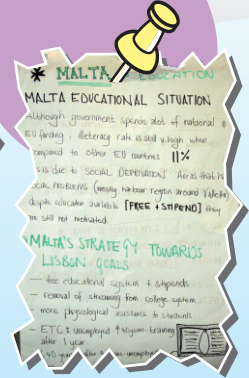 * MALTA EDUCATION
MALTA EDUCATIONAL SITUATION
Although government spends alot of national &
EU funding, illeteracy rate is still v. high when
compared to other EU countries 11%
is is due to SOCIAL DEPRIVATION. Areas that have
SOCIAL PROBLEMS (mostly harbour region around Valletta)
despite education available [FREE + STIPEND] they
are still not motivated.
MALTA'S STRATEGY TOWARDS
LISBON GOALS
- free educational system + stipends
- removal of streaming from college system
more physiological assistants to students
- ETC: unemployed ↑40years-training
after 1 year
40 years after unemployed